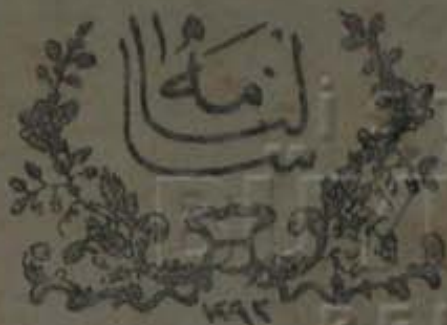 سالنامه
١٢٩٢